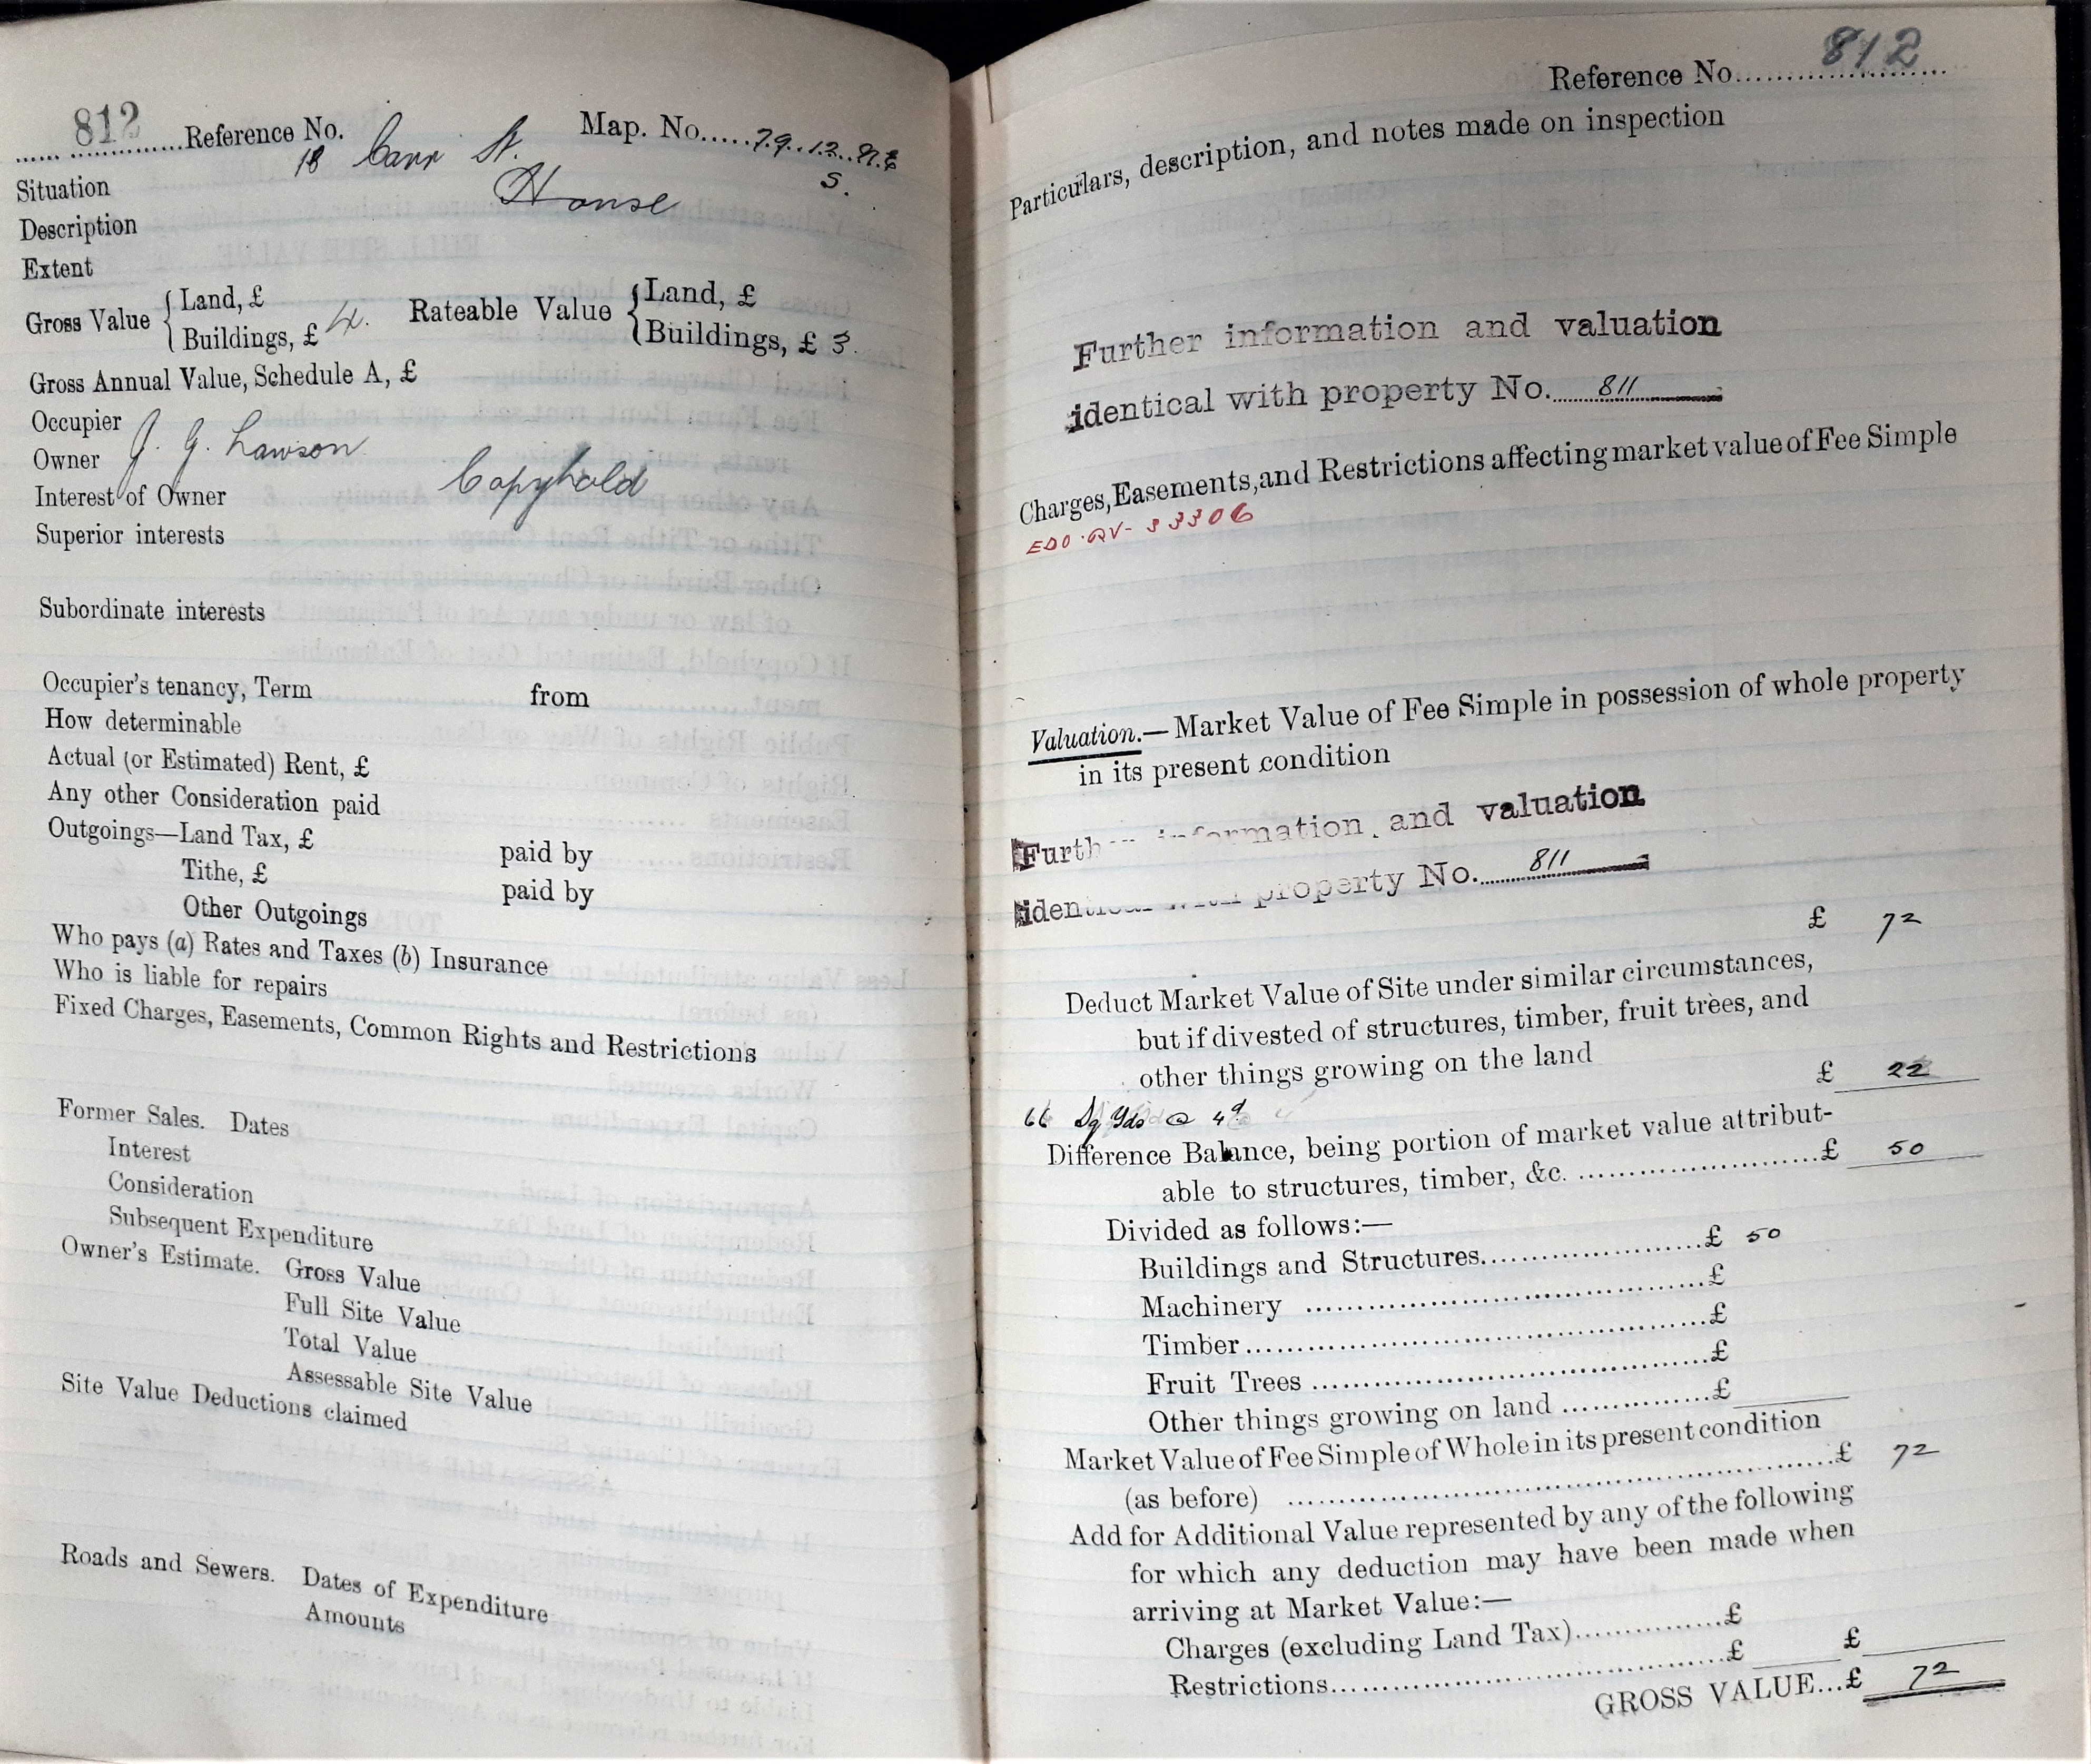 812 Reference No. Map. No. 79.12.N.E
18 Carr St. S.
Situation
House
Description
Extent
Gross Value { Land, £ Rateable Value { Land, £
Buildings, £ 4. Buildings, £ 3.
Gross Annual Value, Schedule A, £
Occupier
Owner J. G. Lawson
Interest of Owner Copyhold
Superior interests
Subordinate interests
Occupier's tenancy, Term from
How determinable
Actual (or Estimated) Rent, £
Any other Consideration paid
Outgoings—Land Tax, £ paid by
Tithe, £ paid by
Other Outgoings
Who pays (a) Rates and Taxes (b) Insurance
Who is liable for repairs
Fixed Charges, Easements, Common Rights and Restrictions
Former Sales. Dates
Interest
Consideration
Subsequent Expenditure
Owner's Estimate. Gross Value
Full Site Value
Total Value
Assessable Site Value
Site Value Deductions claimed
Roads and Sewers. Dates of Expenditure
Amounts
Reference No. 812
Particulars, description, and notes made on inspection
Further information and valuation
identical with property No. 811
Charges, Easements, and Restrictions affecting market value of Fee Simple
33306
Valuation.—Market Value of Fee Simple in possession of whole property
in its present condition
Further information and valuation
identical with property No. 811
£ 72
Deduct Market Value of Site under similar circumstances,
but if divested of structures, timber, fruit trees, and
other things growing on the land £ 22
66 Sq Yds @ 4d
Difference Balance, being portion of market value attribut-
able to structures, timber, &c. £ 50
Divided as follows:—
Buildings and Structures £ 50
Machinery £
Timber £
Fruit Trees £
Other things growing on land £
Market Value of Fee Simple of Whole in its present condition
(as before) £ 72
Add for Additional Value represented by any of the following
for which any deduction may have been made when
arriving at Market Value:—
Charges (excluding Land Tax) £
Restrictions £ £
GROSS VALUE...£ 72